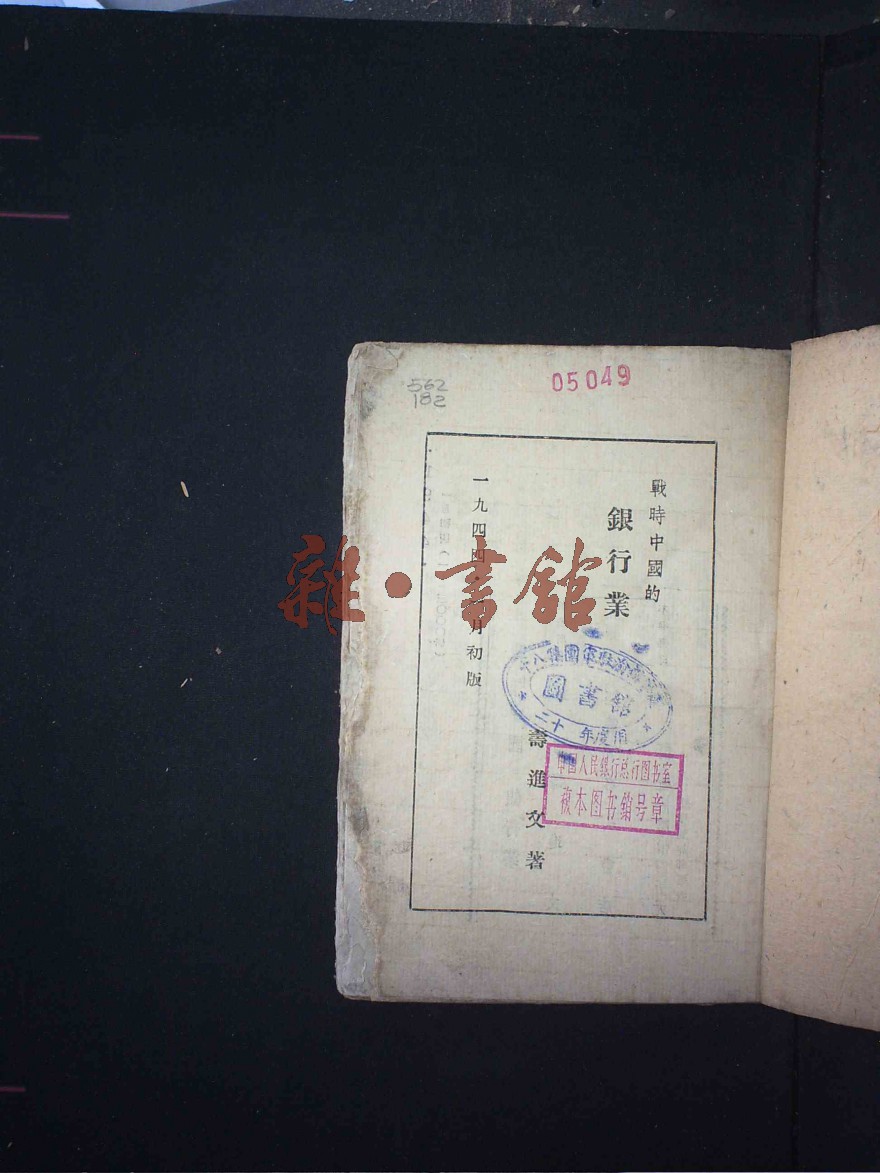 562
182
05049
戰時中國的
銀行業
壽進文著
一九四四
月初版
雜·書館
圖書館
年度用
中国人民銀行总行图书室
複本图书銷号章